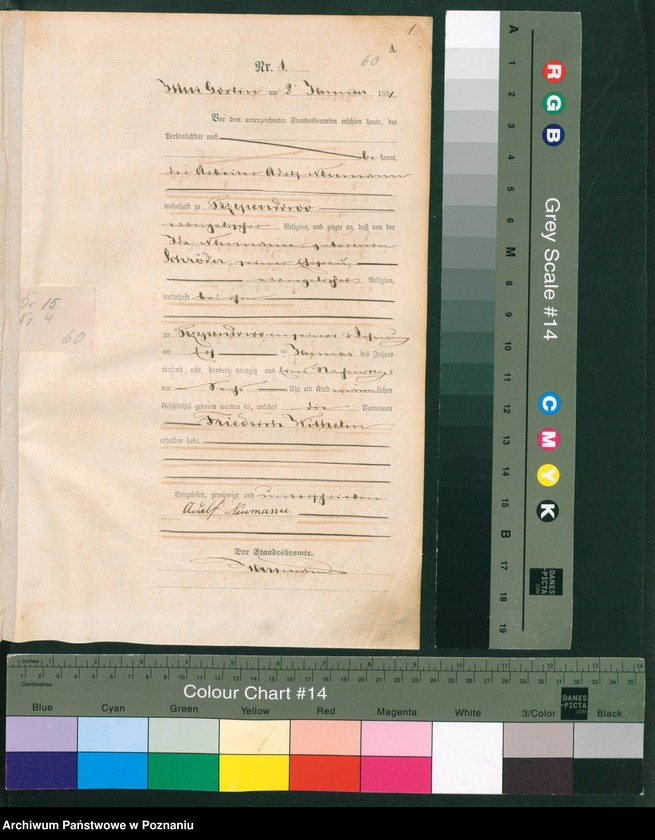 1
A.
60
Nr. 1.
am 2 Januar 1891.
Vor dem unterzeichneten Standesbeamten erschien heute, der
Persönlichkeit nach
be kannt,
der Arbeiter Adolf Neumann
wohnhaft zu Trzependowo
evangelischer Religion, und zeigte an, daß von der
Ida Neumann geborenen
Schröder, seiner Ehefrau,
evangelischer Religion,
wohnhaft bei ihm
zu Trzependowo in seiner Wohnung
am ten Januar des Jahres
tausend acht hundert neunzig und eins Nachmittags
um sechs Uhr ein Kind männlichen
Geschlechts geboren worden sei, welches die Vornamen
Friedrich Wilhelm
erhalten habe.
Vorgelesen, genehmigt und unterschrieben
Adolf Neumann
Der Standesbeamte.
Nr. 4
60
A 1 2 3 4 5 M 8 9 10 11 12 13 14 15 B 17 18 19
R G B
Grey Scale #14
C M Y K
DANES-PICTA.COM
Inches 1 2 3 4 5 6 7 8 9 10 11 12 13 14
Centimetres
Colour Chart #14
DANES-PICTA.COM
Blue Cyan Green Yellow Red Magenta White 3/Color Black
Archiwum Państwowe w Poznaniu